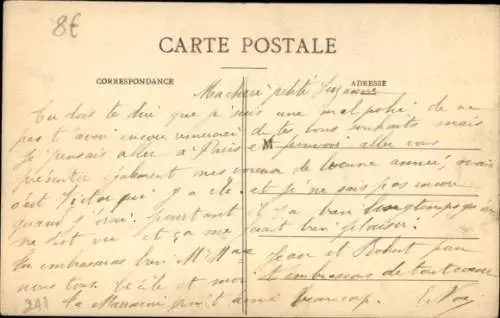 8€
CARTE POSTALE
CORRESPONDANCE
ADRESSE
Ma chère petite Suzanne
Tu dois te dire que je suis une mal polie de ne
pas t'avoir encore remercié de tes bons souhaits mais
M
je pensais aller à Paris et pouvoir aller vous
présenter également mes voeux de bonne année, mais
c'est Victor qui y a été et je ne sais pas encore
quand j'irai. pourtant il y a bien longtemps qu'on
ne s'est vu et ça me ferait bien plaisir.
Tu embrasseras bien Mr Jean et Robert pour
nous tous. Cécile et moi t'embrassons de tout coeur
Ta Marraine qui t'aime beaucoup.
241